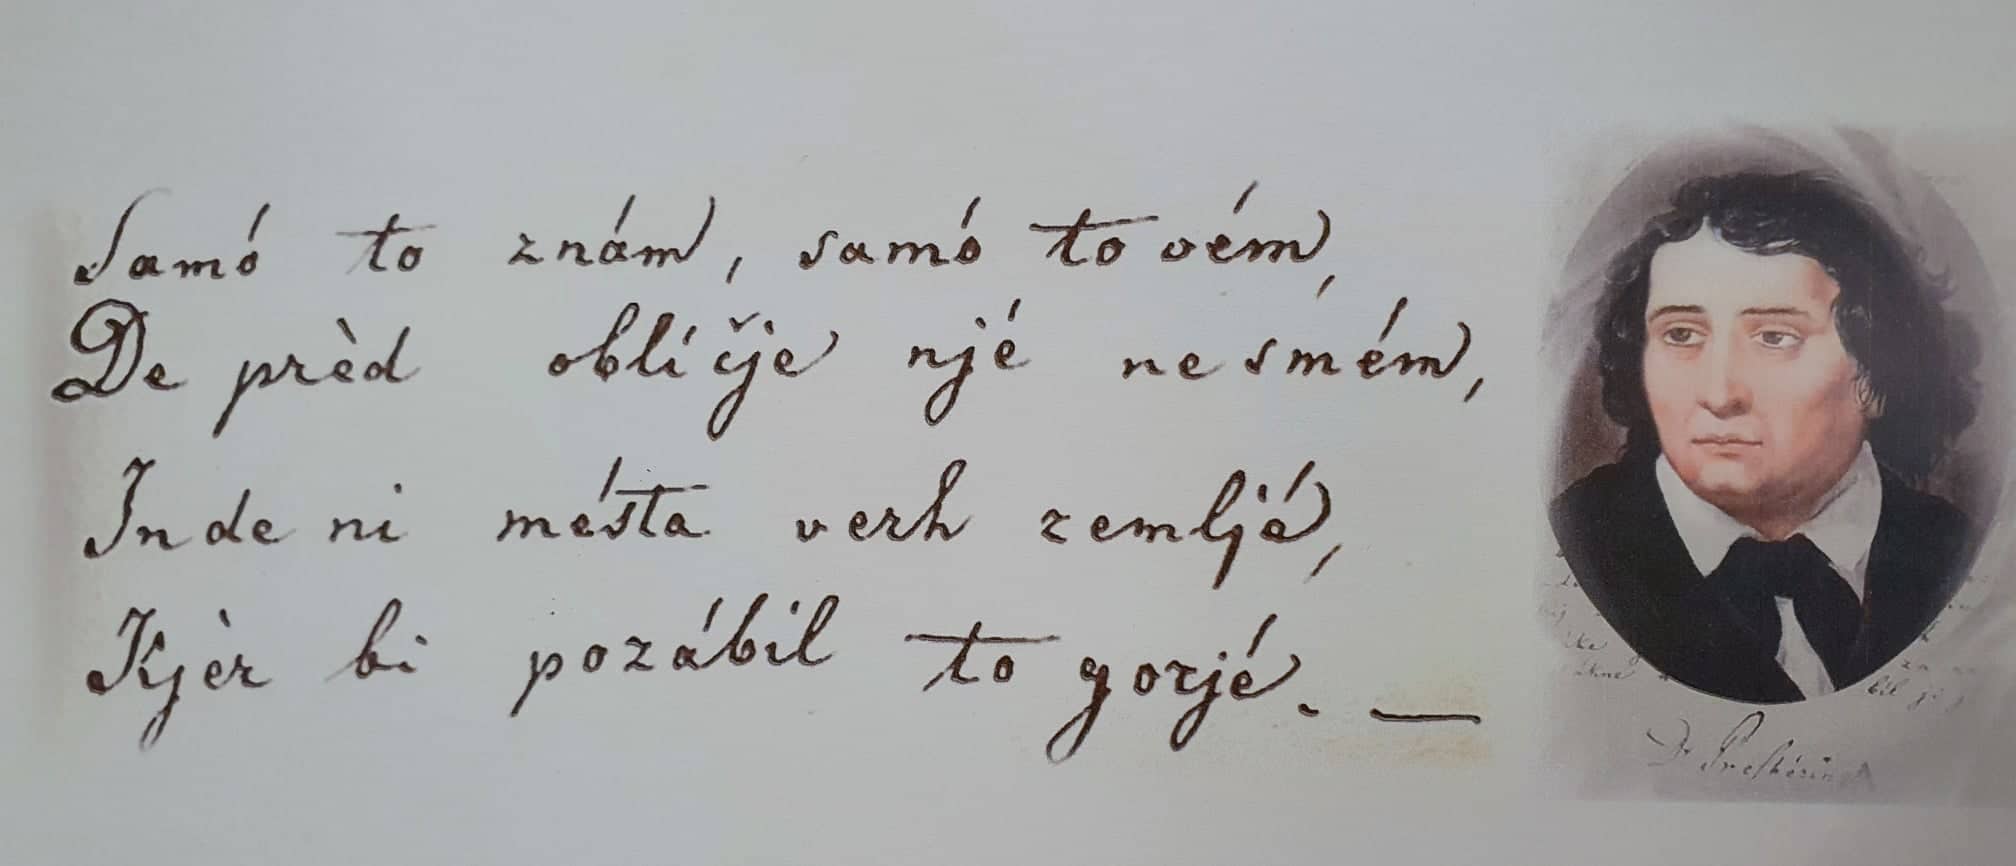 Samó to znám, samó to vém,
De prèd oblíčje njé ne smém,
In de ni mésta verh zemljé,
Kjèr bi pozábil to gorjé. —
Dr Preshérin